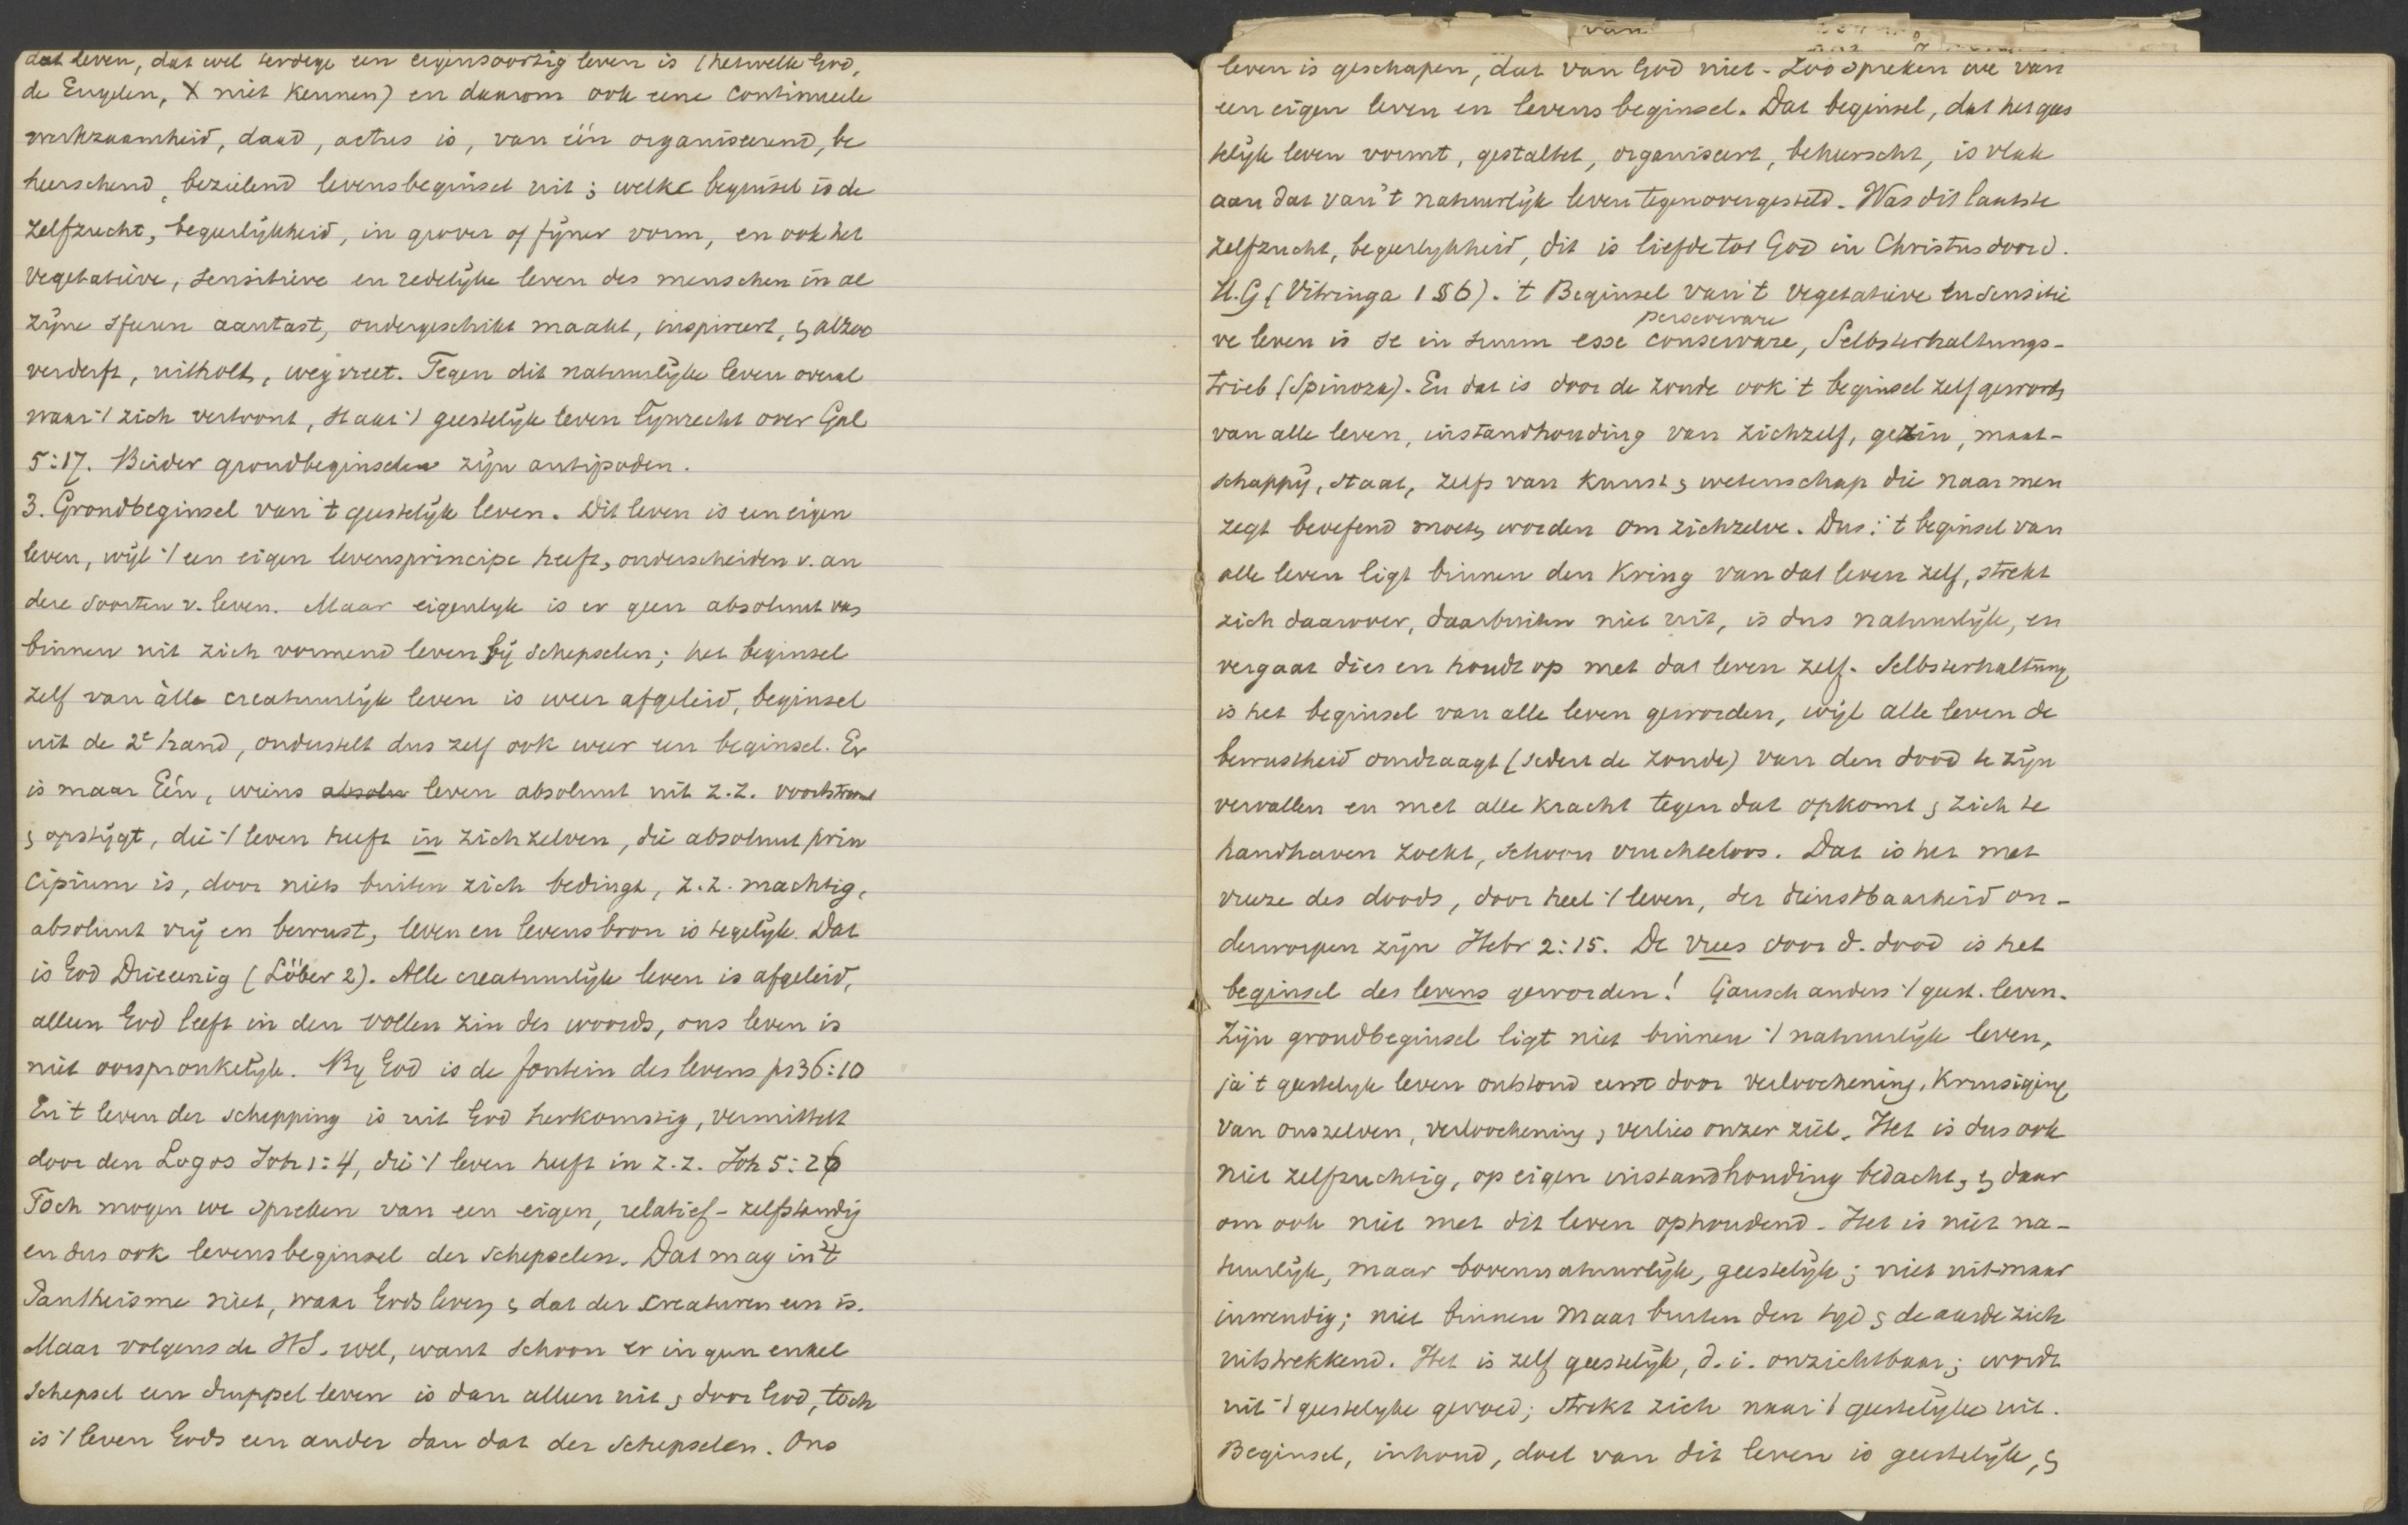 dat leven, dat wel terdege een eigensoortig leven is (hetwelk God,
de Engelen, X niet kennen) en daarom ook eene continueele
werkzaamheid, daad, actus is, van één organiseerend, be
heerschend, bezielend levensbeginsel uit; welke beginsel is de
zelfzucht, begeerlijkheid, in grover of fijner vorm, en ook het
vegetatieve, sensitieve en redelijke leven des menschen in al
zijne sferen aantast, ondergeschikt maakt, inspireert, & alzoo
verderft, uitholt, wegvreet. Tegen dit natuurlijke leven overal
waar 't zich vertoont, staat 't geestelijke leven lijnrecht over Gal
5:17. Beider grondbeginselen zijn antipoden.
3. Grondbeginsel van 't geestelijk leven. Dit leven is een eigen
leven, wijl 't een eigen levensprincipe heeft, onderscheiden v. an
dere soorten v. leven. Maar eigenlijk is er geen absoluut van
binnen uit zich vormend leven bij schepselen; het beginsel
zelf van àlle creatuurlijk leven is weer afgeleid, beginsel
uit de 2e hand, onderstelt dus zelf ook weer een beginsel. Er
is maar Eén, wiens absolu leven absoluut uit z.z. voortstroomt
& opstijgt, die 't leven heeft in zich zelven, die absoluut prin
cipium is, door niets buiten zich bedingt, z.z. machtig,
absoluut vrij en bewust, leven en levensbron is tegelijk. Dat
is God Drieeenig (Löber 2). Alle creatuurlijk leven is afgeleid,
alleen God leeft in den vollen zin des woords, ons leven is
niet oorspronkelijk. By God is de fontein des levens ps 36:10
En 't leven der schepping is uit God herkomstig, vermittelt
door den Logos Joh 1:4, die 't leven heeft in z.z. Joh 5:26
Toch mogen we spreken van een eigen, relatief-zelfstandig
en dus ook levensbeginsel der schepselen. Dat mag in 't
Pantheisme niet, waar Gods leven & dat der creaturen een is.
Maar volgens de HS. wel, want schoon er in geen enkel
schepsel een druppel leven is dan alleen uit & door God, toch
is 't leven Gods een ander dan dat der schepselen. Ons
leven is geschapen, dat van God niet. Zoo spreken we van
een eigen leven en levensbeginsel. Dat beginsel, dat het gees
telijk leven vormt, gestaltet, organiseert, beheerscht, is vlak
aan dat van 't natuurlijk leven tegenovergesteld. Was dit laatste
zelfzucht, begeerlijkheid, dit is liefde tot God in Christus door d.
H.G (Vitringa 1 § 6). 't Beginsel van 't vegetatieve en sensitie
perseverare
ve leven is se in suum esse conservare, Selbsterhaltungs-
trieb (Spinoza). En dat is door de zonde ook 't beginsel zelf geworden
van alle leven, instandhouding van zichzelf, gezin, maat-
schappij, staat, zelfs van kunst & wetenschap die naar men
zegt beoefend moeten worden om zichzelve. Dus: 't beginsel van
alle leven ligt binnen den kring van dat leven zelf, strekt
zich daarover, daarbuiten niet uit, is dus natuurlijk, en
vergaat dies en houdt op met dat leven zelf. Selbsterhaltung
is het beginsel van alle leven geworden, wijl alle leven de
bewustheid omdraagt (sedert de zonde) van den dood te zijn
vervallen en met alle kracht tegen dat opkomt & zich te
handhaven zoekt, schoon vruchteloos. Dat is het met
vreeze des doods, door heel 't leven, der dienstbaarheid on-
derworpen zijn Hebr 2:15. De vrees voor d. dood is het
beginsel des levens geworden! Gansch anders 't geest. leven.
Zijn grondbeginsel ligt niet binnen 't natuurlijk leven,
ja 't geestelijk leven ontstond eerst door verloochening, kruisiging
van onszelven, verloochening, verlies onzer ziel. Het is dus ook
niet zelfzuchtig, op eigen instandhouding bedacht, & daar
om ook niet met dit leven ophoudend. Het is niet na-
tuurlijk, maar bovennatuurlijk, geestelijk; niet uit-maar
inwendig; niet binnen maar buiten den tijd & de aarde zich
uitstrekkend. Het is zelf geestelijk, d.i. onzichtbaar; wordt
uit 't geestelijke gevoed; strekt zich naar 't geestelijke uit.
Beginsel, inhoud, doel van dit leven is geestelijk, &